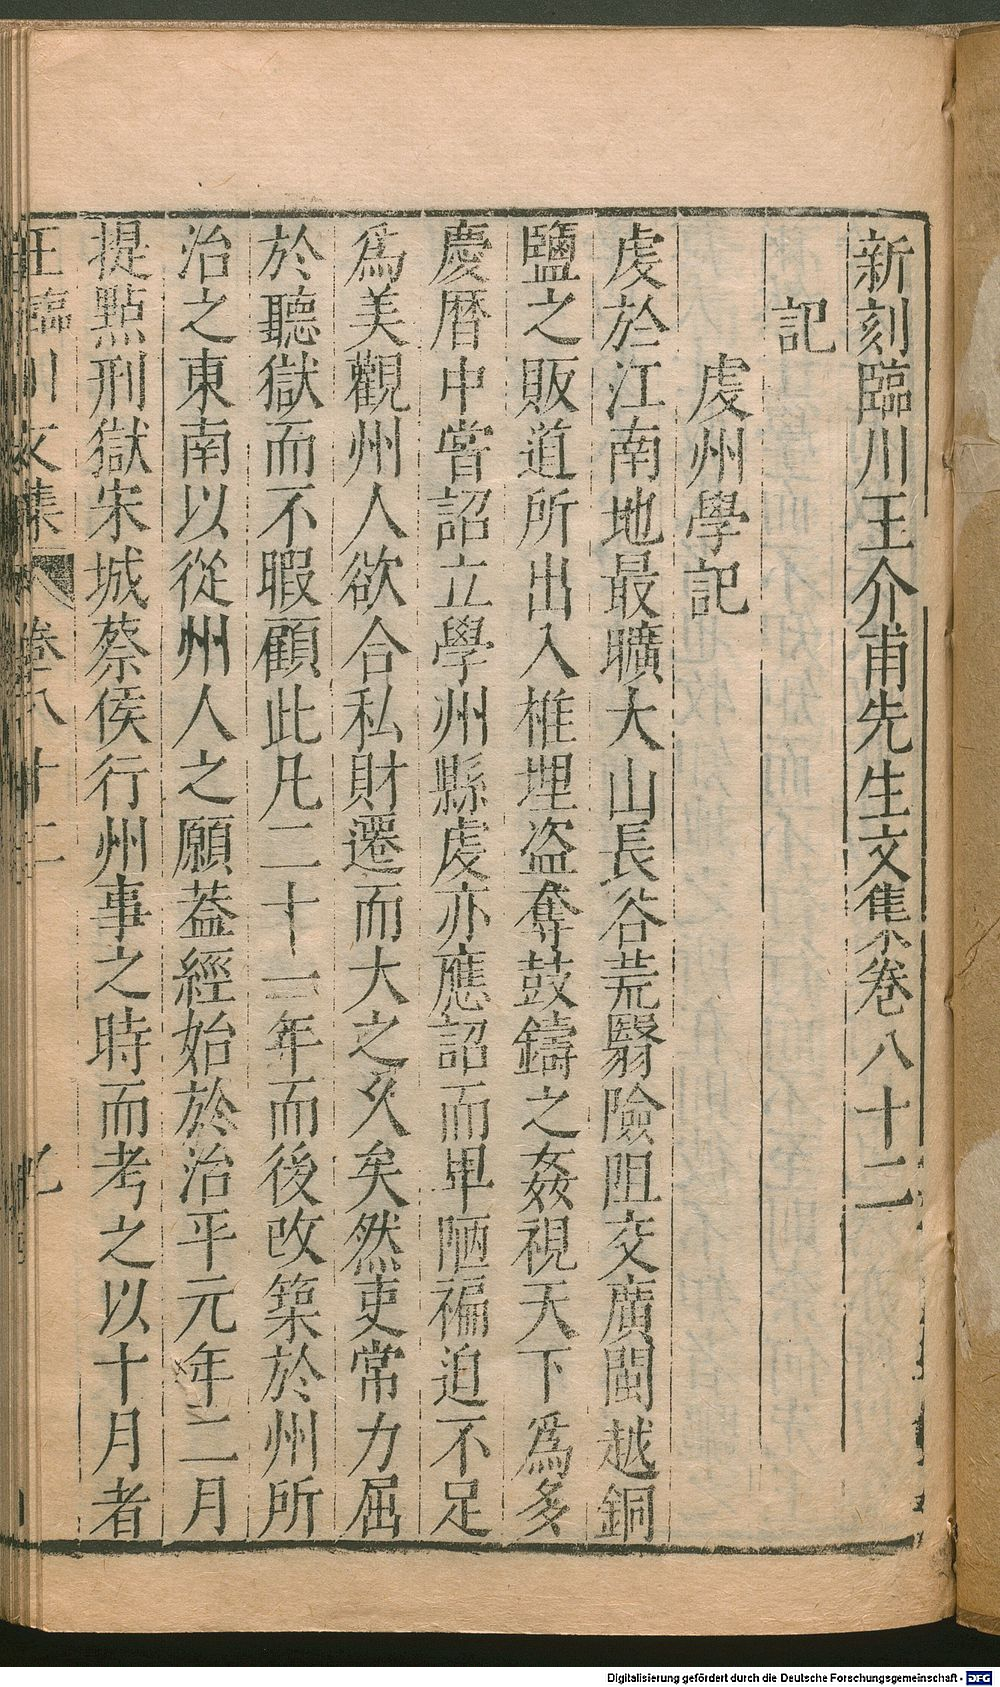 新刻臨川王介甫先生文集卷八十二
記
虔州學記
虔於江南地最曠大山長谷荒翳險阻交廣閩越銅
鹽之販道所出入椎埋盗奪鼓鑄之姦視天下爲多
慶曆中嘗詔立學州縣虔亦應詔而卑陋褊迫不足
爲美觀州人欲合私財遷而大之乆矣然吏常力屈
於聽獄而不暇顧此凡二十一年而後改築於州所
治之東南以從州人之願葢經始於治平元年二月
提㸃刑獄宋城蔡侯行州事之時而考之以十月者
王臨川文集 卷八十二
Digitalisierung gefördert durch die Deutsche Forschungsgemeinschaft - DFG